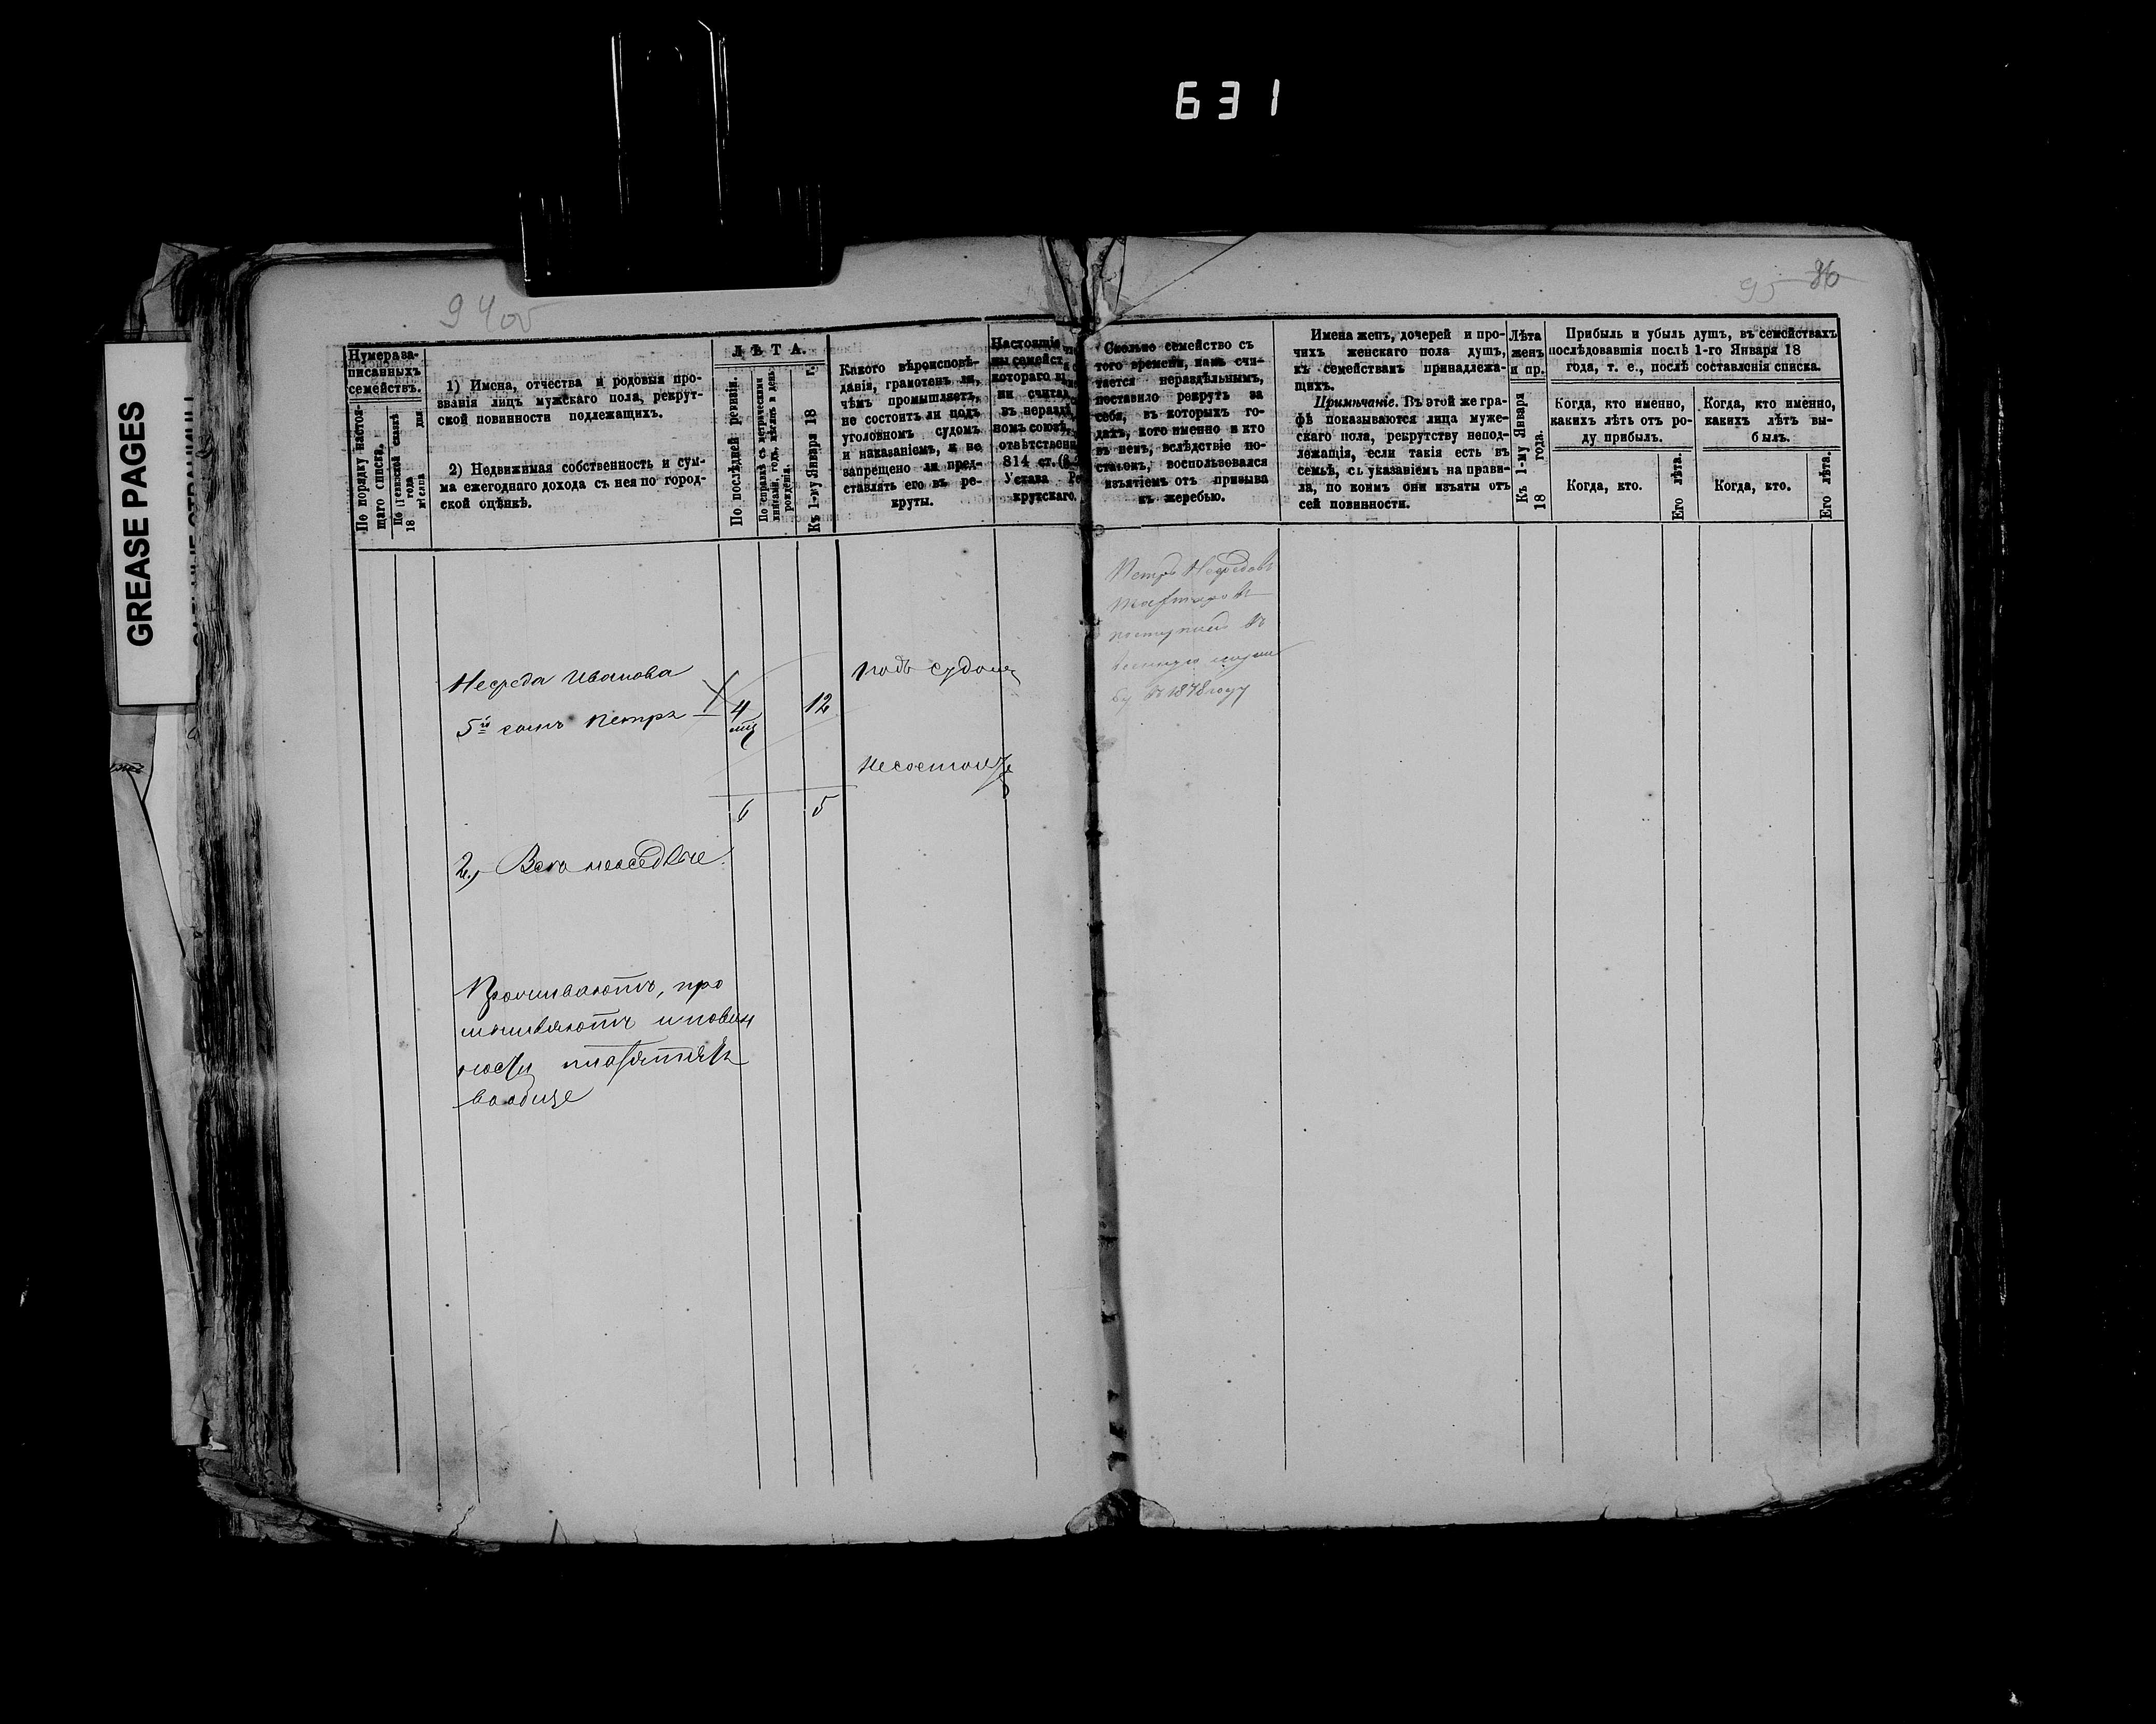 631
GREASE PAGES
94об
95 86
Нумера за-
писанныхъ
семействъ.
По порядку настоя-
щаго списка.
По Ревизской сказкѣ
18 года
мѣсяца дня
1) Имена, отчества и родовыя про-
званія лицъ мужскаго пола, рекрут-
ской повинности подлежащихъ.
2) Недвижимая собственность и сум-
ма ежегоднаго дохода съ нея по город-
ской оцѣнкѣ.
ЛѢТА.
По послѣдней ревизіи.
По справкѣ съ метрическими
книгами, годъ, мѣсяцъ и день
рожденія.
Къ 1-му Января 18 г.
Какого вѣроисповѣ-
данія, грамотенъ ли,
чѣмъ промышляетъ,
не состоитъ ли подъ
уголовномъ судомъ
и наказаніемъ, и не
запрещено ли пред-
ставлять его въ ре-
круты.
Настоящіе
ны семейст
котораго
ни счита
въ нераздѣ
номъ союзѣ,
отвѣтственн
814 ст.
Устава Ре
крутскаго.
Сколько семейство съ
того времени, какъ счи-
тается нераздѣльнымъ,
поставило рекрутъ за
себя, въ которыхъ го-
дахъ, кого именно и кто
въ немъ, вслѣдствіе по-
статокъ, воспользовался
изъятіемъ отъ призыва
къ жеребью.
Имена женъ, дочерей и про-
чихъ женскаго пола душъ,
къ семействамъ принадлежа-
щихъ.
Примѣчаніе. Въ этой же гра-
фѣ показываются лица муже-
скаго пола, рекрутству непод-
лежащія, если такія есть въ
семьѣ, съ указаніемъ на прави-
ла, по коимъ они изъяты отъ
сей повинности.
Лѣта
женъ
и пр.
Къ 1-му Января
18 года.
Прибыль и убыль душъ, въ семействахъ
послѣдовавшія послѣ 1-го Января 18
года, т. е., послѣ составленія списка.
Когда, кто именно,
какихъ лѣтъ отъ ро-
ду прибылъ.
Когда, кто именно,
какихъ лѣтъ вы-
былъ.
Когда, кто.
Его лѣта.
Когда, кто.
Его лѣта.
Иванова
5й сынъ Петръ 4 12
подъ судомъ
несостоитъ
6 5
2,
Проживаютъ, про
мышляютъ и повин
ности платятъ
вообще
Петръ
поступилъ въ
въ 1878 году